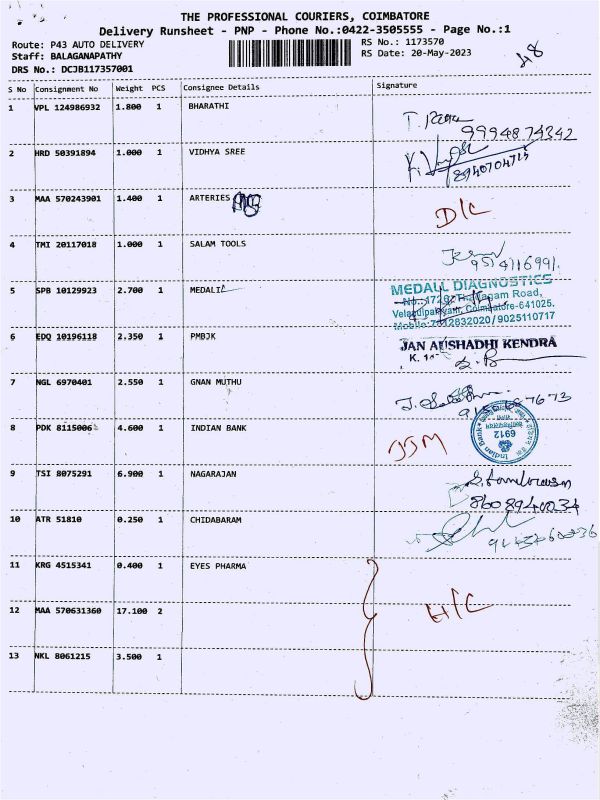 THE PROFESSIONAL COURIERS, COIMBATORE
Delivery Runsheet - PNP - Phone No.:0422-3505555 - Page No.:1
Route: P43 AUTO DELIVERY RS No.: 1173570
Staff: BALAGANAPATHY RS Date: 20-May-2023
DRS No.: DCJB117357001
48
S No Consignment No Weight PCS Consignee Details Signature
1 VPL 124986932 1.800 1 BHARATHI
9994874342
2 HRD 50391894 1.000 1 VIDHYA SREE
3 MAA 570243901 1.400 1 ARTERIES D/C
4 TMI 20117018 1.000 1 SALAM TOOLS
5 SPB 10129923 2.700 1 MEDALL
MEDALL DIAGNOSTICS
Coimbatore-641025.
Mobile:7012832020/9025110717
6 EDQ 10196118 2.350 1 PMBJK
JAN AUSHADHI KENDRA
7 NGL 6970401 2.550 1 GNAN MUTHU
8 PDK 8115006 4.600 1 INDIAN BANK
Indian Bank
6912
9 TSI 8075291 6.900 1 NAGARAJAN
8608940034
10 ATR 51810 0.250 1 CHIDABARAM
11 KRG 4515341 0.400 1 EYES PHARMA
12 MAA 570631360 17.100 2
13 NKL 8061215 3.500 1